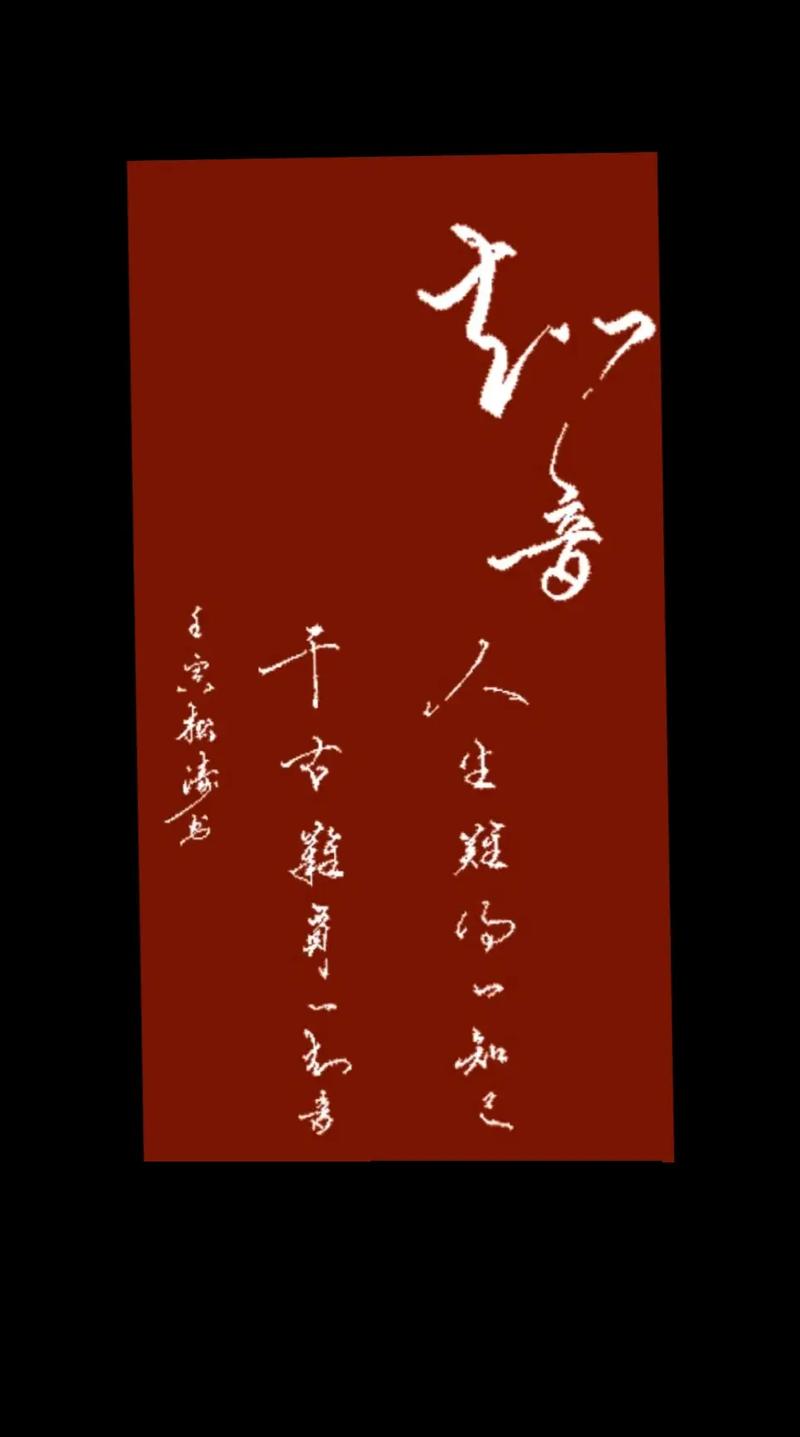 知音
人生難得一知己
千古難尋一知音
壬寅松濤书